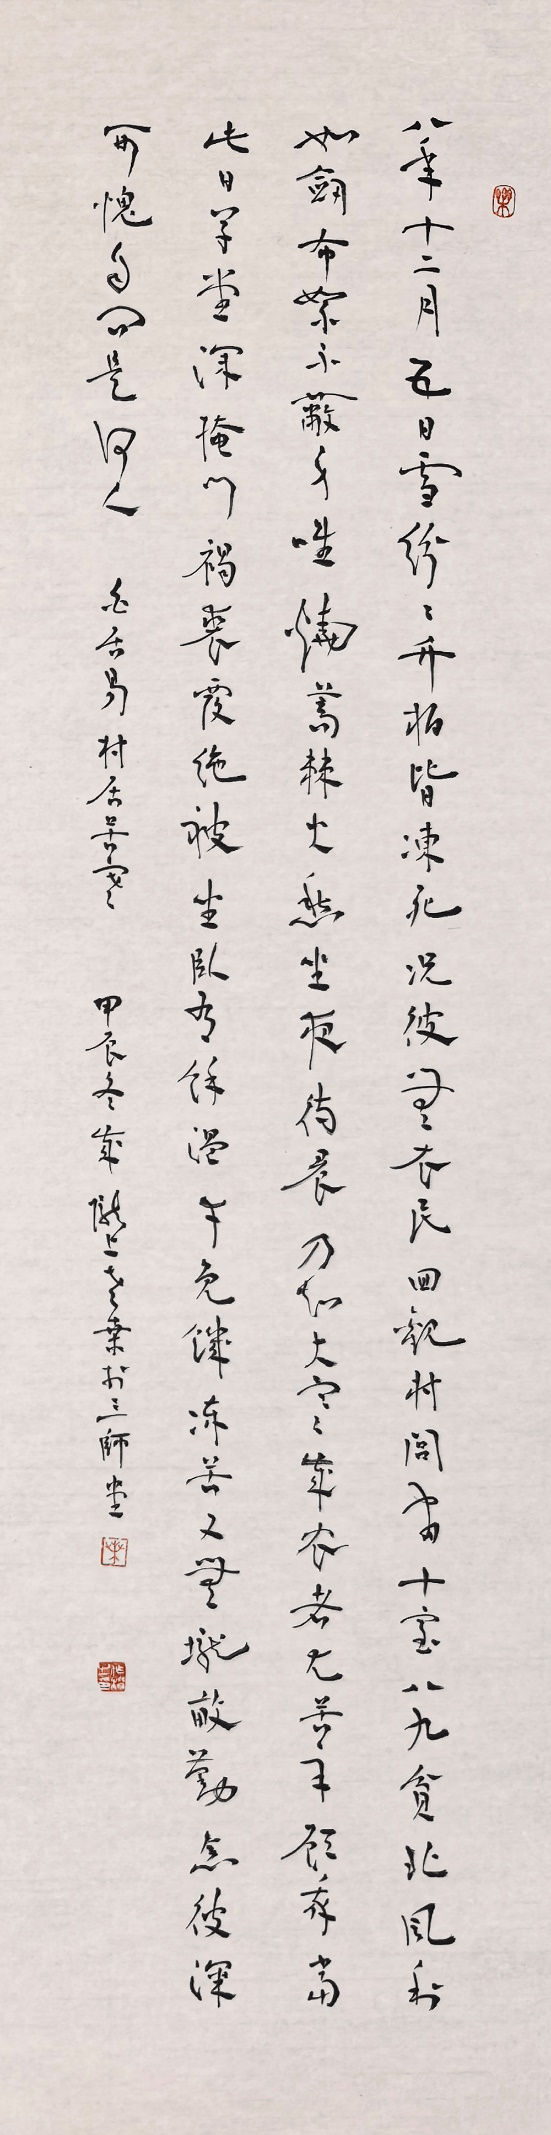 八年十二月五日雪紛々竹柏皆凍死況彼無衣民回觀村閭間十室八九貧北風利
如劍布絮不蔽身唯燒蒿棘火愁坐夜待晨乃知大寒歲農者尤苦辛顧我當
此日草堂深掩門褐裘覆絁被坐臥有餘溫幸免饑凍苦又無壠畝勤念彼深
可愧自問是何人 白居易村居苦寒 甲辰冬歲隴上老於三師堂